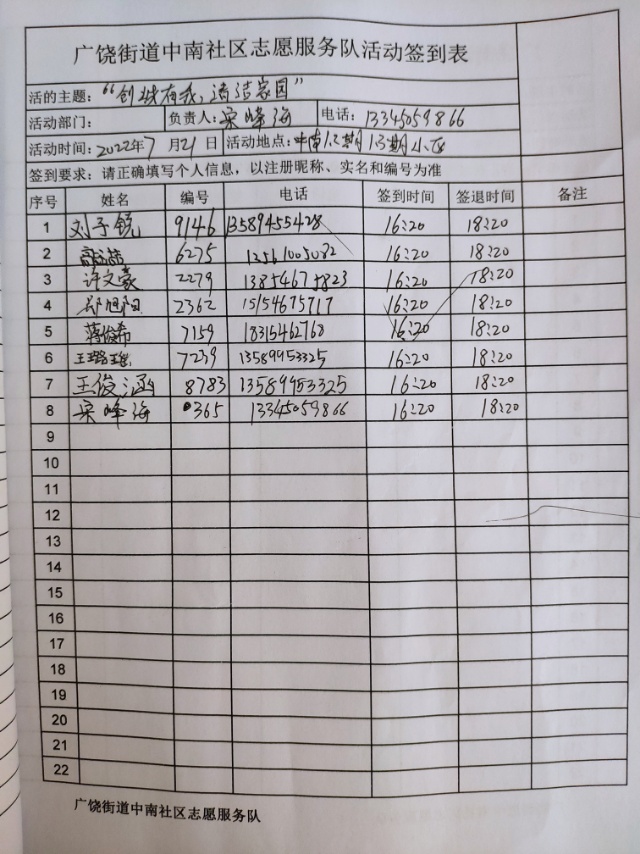 广饶街道中南社区志愿服务队活动签到表
活的主题：“创城有我，清洁家园”
活动部门： 负责人：宋峰海 电话：13345059866
活动时间：2022年7月21日 活动地点：中南1.2期1.3期小区
签到要求：请正确填写个人信息，以注册昵称、实名和编号为准
序号 姓名 编号 电话 签到时间 签退时间 备注
1 刘子锐 9146 13589455428 16:20 18:20
2 6275 16:20 18:20
3 许文豪 2279 13854675823 16:20 18:20
4 郑旭阳 2362 15154675717 16:20 18:20
5 蒋俊希 7159 18315462768 16:20 18:20
6 7239 13589953325 16:20 18:20
7 王俊涵 8783 13589953325 16:20 18:20
8 宋峰海 0365 13345059866 16:20 18:20
9
10
11
12
13
14
15
16
17
18
19
20
21
22
广饶街道中南社区志愿服务队